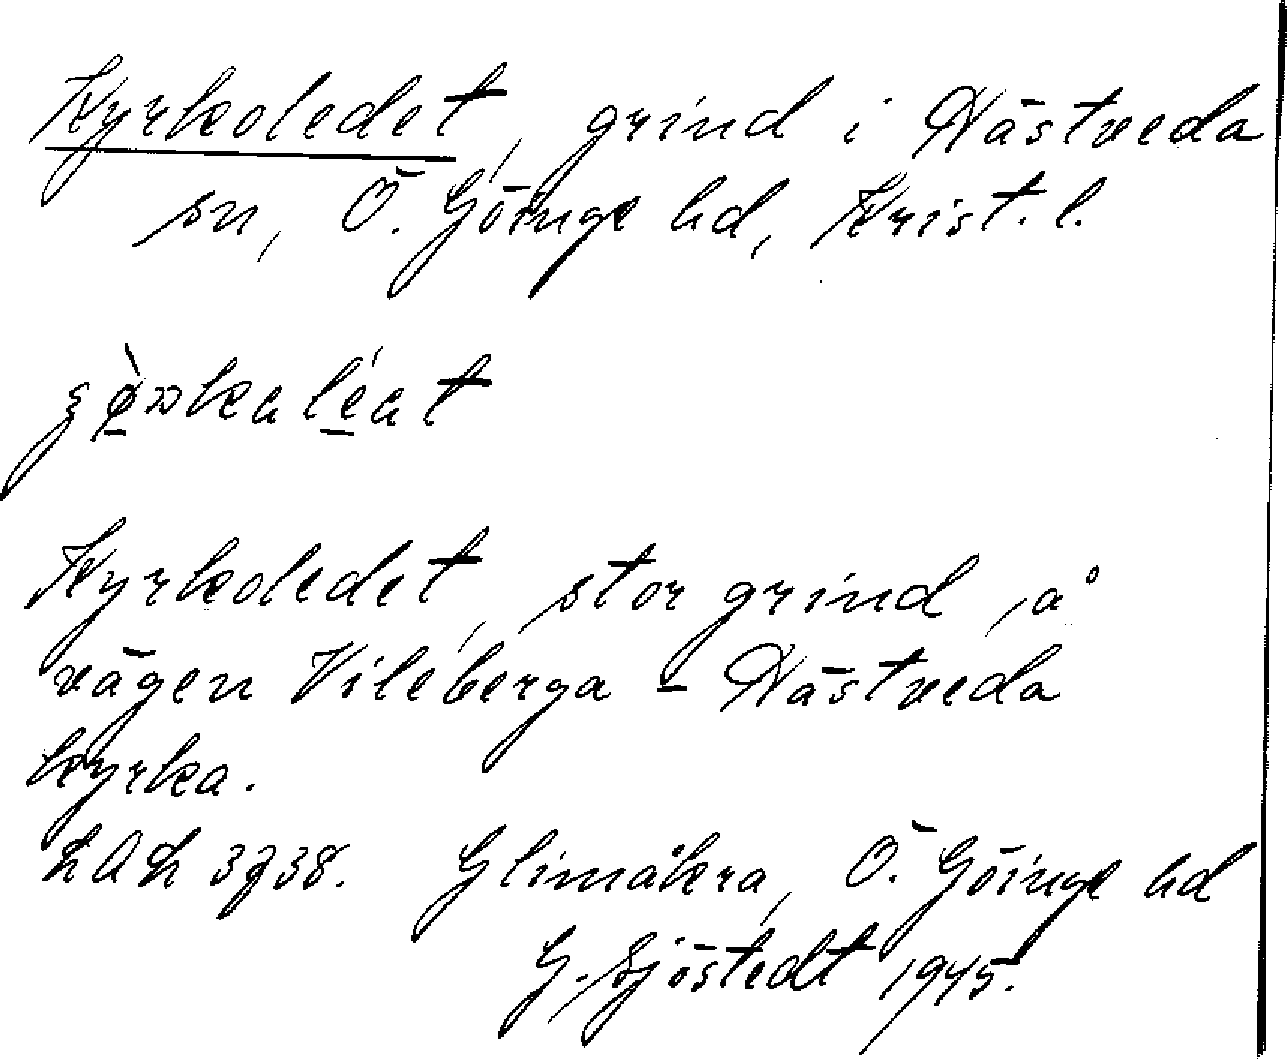 Kyrkoledet, grind i Hästveda
sn, Ö. Göinge hd, Krist. l.
Kyrkoledet, stor grind, å
vägen Vileberga - Hästveda
kyrka.
LAL 3738. Glimåkra, Ö. Göinge hd
G. Sjöstedt 1945.